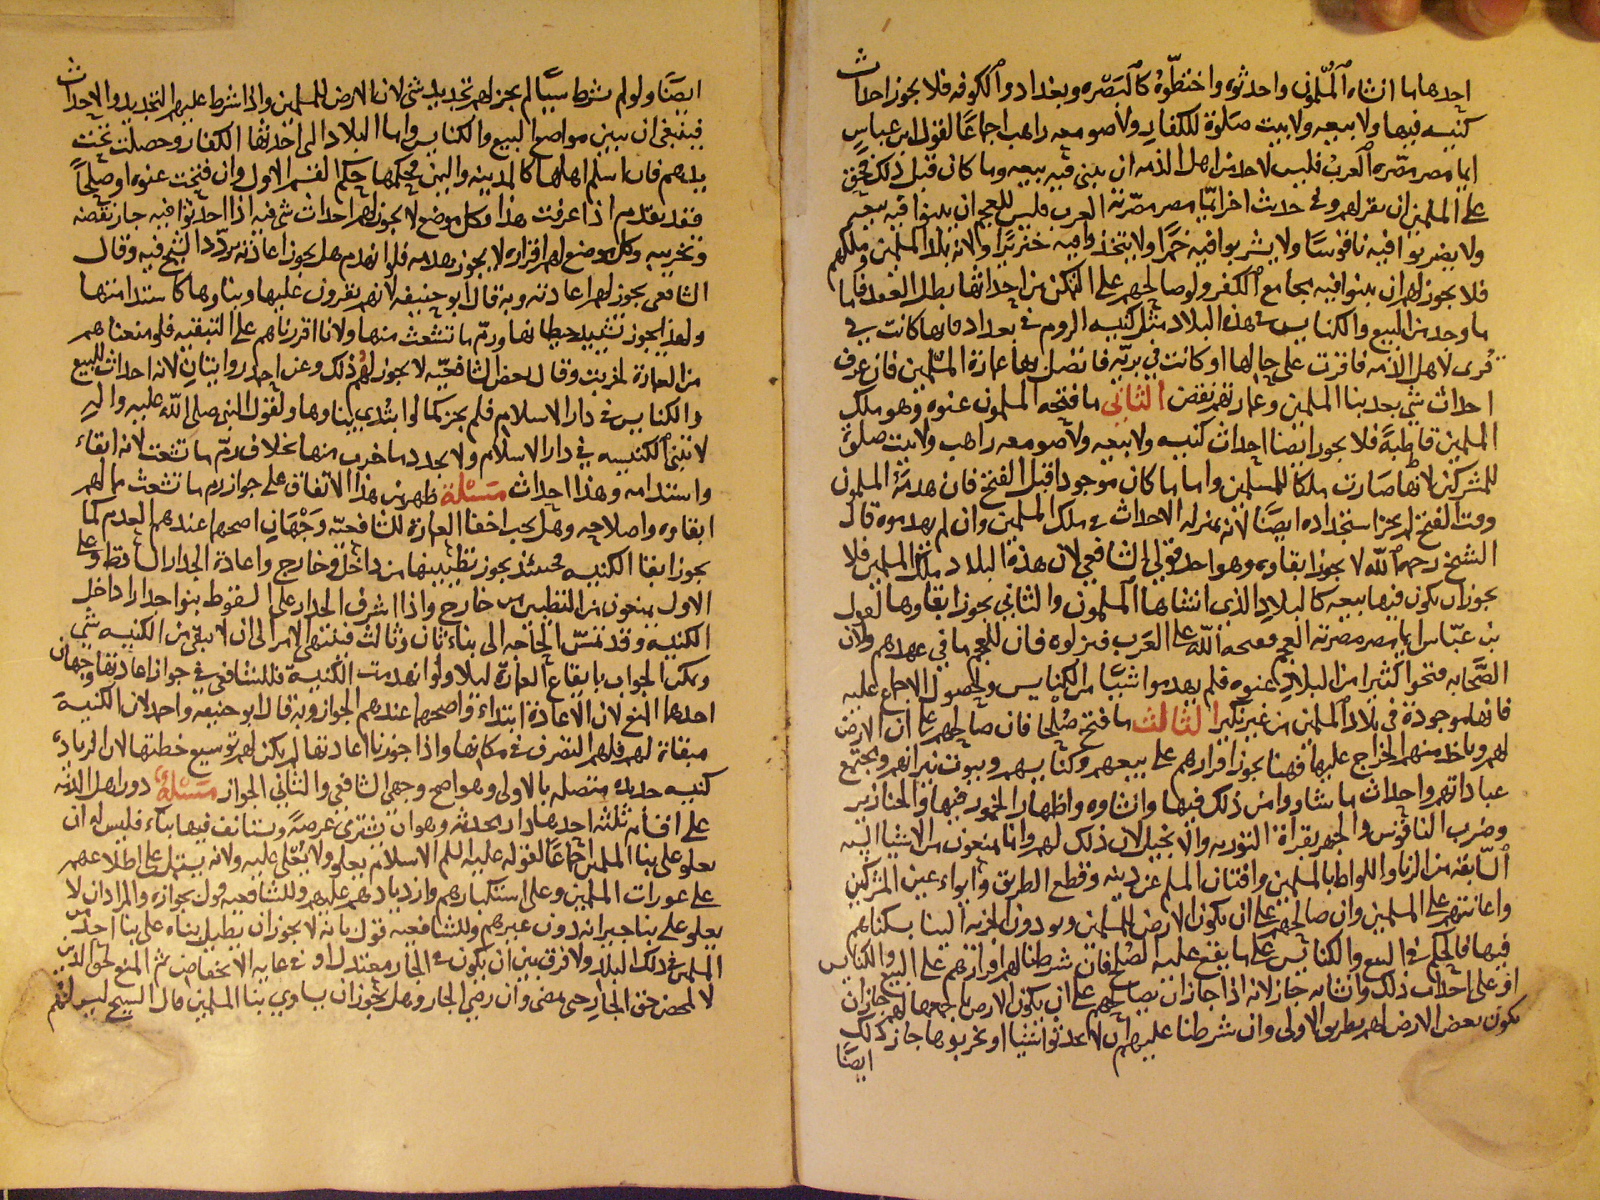 احدها ما انشاه المسلمون واحدثوه واختطّوه كالبَصْره وبغداد والكوفه فلا يجوز احداث
كنيسه فيها ولا بيعه ولا بيت صَلوة للكفار ولا صومعه راهب اجماعًا لقول ابن عباس
ايما مصر مصّره العربُ فليس لاحد من اهل الذمه ان يبني فيه بيعه وما كان قبل ذلك فحق
على المسلمين ان يقر لهم وفي حديث اخر ايّما مصر مصّرته العرب فليس للعجم ان يبنوا فيه بيعه
ولا يضربوا فيه ناقوسًا ولا يشربوا فيه خمرًا ولا يتخذوا فيه خنزيرًا ولانه بلد المسلمين وملكهم
فلا يجوز لهم ان يبنوا فيه مجامع الكفر ولو صالحهم على التمكن من احداثها بطل العقد فاما
ما وجد من البيع والكنايس في هذه البلاد مثل كنيسه الروم في بغداد فانها كانت في
قرى لاهل الذمه فاقرت على حالها او كانت في بريّه فاتصل بها عمارة المسلمين فان عرف
احداث شي بعد بنا المسلمين وعمارتهم نقض الثاني ما فتحه المسلمون عنوه فهو ملك
المسلمين قاطبةً فلا يجوز ايضا احداث كنيسه ولا بيعه ولا صومعه راهب ولا بيت صلوة
للمشركين لانها صارت ملكا للمسلمين واما ما كان موجودا قبل الفتح فان هدمَهُ المسلمون
وقت الفتح لم يجز استجداده ايضًا لانه بمنزله الاحداث في ملك المسلمين وان لم يهدموه قال
الشيخ رحمه الله لا يجوز ابقاوه وهو احد قولي الشافعي لان هذه البلاد ملك المسلمين فلا
يجوز ان يكون فيها بيعه كالبلاد الذي انشاها المسلمون والثاني يجوز ابقاوها لقول
بن عبّاس ايما مصر مصرته العجم ففتحه الله على العَرب فنزلوه فان للعجم ما في عهدهم ولان
الصَّحابه فتحوا كثيرا من البلاد عنوه فلم يهدموا شيًا من الكنايس ولحصول الاجماع عليه
فانها موجودة في بلاد المسلمين من غير نكير الثالث ما فتح صُلحا فان صالحهم على ان الارض
لهم وياخذ منهم الخراج عليها فهنا يجوز اقرارهم على بيعهم وكنايسهم وبيوت نيرانهم ومجتمع
عباداتهم واحداث ما شاووا من ذلك فيها وانشاوه واظهار الخمور فيها والخنازير
وضرب الناقوس والجهر بقراة التوريه والانجيل لان ذلك لهم وانما يمنعون من الاشيا السته
السّابقه من الزنا واللواط بالمسلمين وافتتان المسلم عن دينه وقطع الطريق وايواء عين المشركين
واعانتهم على المسلمين وان صالحهم على ان يكون الارض للمسلمين ويودون الجزيه الينا بسكناهم
فيها فالحكم في البيع والكنائس على ما يقع عليه الصُلح فان شرطنا لهم اقرارهم على البيع والكنايس
او على احداث ذلك وانشايه جاز لانه اذا جاز ان يصالحهم على ان يكون الارض باجمعها لهم جاز ان
يكون بعض الارض لهم بطريق الاولى وان شرطنا عليهم ان لا يحدثوا شيئا او نخربوها جاز ذلك
ايضًا
ايضًا ولو لم يشرط سببًا لم يجز لهم تجديد شي لان الارض للمسلمين واذا شرط عليهم التجديد والاحداث
فينبغي ان يبين مواضع البيع والكنايس واما البلاد التي احدثها الكفار وحصلت تحت
يدهم فان اسلم اهلها كالمدينه واليمن فحكمها حكم القسم الاول وان فتحت عنوه او صلحًا
فقد تقدم اذا عرفت هذا وكل موضع لا يجوز لهم احداث شي فيه اذا احدثوا فيه جاز نقضه
وتخريبه وكل موضع لهم اقراره لا يجوز هدمه فلو انهدم هل يجوز اعادته تردّد الشيخ فيه وقال
الشافعي يجوز لهم اعادته وبه قال ابو حنيفه لانهم يقرون عليها وبناوها كاستدامتها
ولهذا يجوز تشييد حيطانها ورمّ ما تشعث منها ولانا اقررناهم على التبقيه فلو منعناهم
من العمارة لخربت وقال بعض الشافعيّه لا يجوز لهم ذلك وعن احمد روايتان لانه احداث للبيع
والكنايس في دار الاسلام فلم يجز كما لو ابتُدي بناوها ولقول النبي صلى اللّه عليه واله
لا تبنى الكنيسه في دار الاسلام ولا يجدد ما خرب منها بخلاف رمّ ما تشعث لانه ابقاء
واستدامه وهذا احداث مَسْئلة ظهر من هذا الاتفاق على جواز رم ما تشعث مما لهم
ابقاوه واصلاحه وهل يجب اخفا العمارة للشافعيّه وَجْهَانِ اصحهما عندهم العدم كما
يجوز ابقا الكنيسه فحينئذ يجوز تطيينها من داخل وخارج واعادة الجدار الساقط وعلى
الاول يمنعون من التطيين من خارج واذا اشرف الجدار على السقوط بنوا جدارا داخل
الكنيسه وقد تمسّ الحاجه الى بناء ثان وثالث فينتهي الامر الى ان لا يبقى من الكنيسه شي
ويمكن الجواب بايقاع العمارة ليلا ولو انهدمت الكنيسة فللشافعي في جواز اعادتها وجهان
احدهما المنع لان الاعادة ابتداء واصحهما عندهم الجواز وبه قال ابو حنيفه واحمد لان الكنيسة
مبقاة لهم فلهم التصرف في مكانها واذا جوزنا اعادتها لم يكن لهم توسيع خطتها لان الزيادة
كنيسه جديدة متصله بالاولى وهو اصح وجهي الشافعي والثاني الجواز مسئلة دور اهل الذمه
على اقسام ثلثه احدها دار محدثه وهو ان يشتري عرصةً ويستانف فيها بناء فليس له ان
يعلو على بنا المسلمين اجماعًا لقوله عليه السلم الاسلام يعلو ولا يُعْلى عليه ولانه يشتمل على اطلاعهم
على عورات المسلمين وعلى استكبارهم وازديادهم عليهم وللشافعيه قول بجوازه والمراد ان لا
يعلو على بنا جيرانه دون غيرهم وللشافعيه قول بانه لا يجوز ان يطيل بناه على بنا احد من
المسلمين في ذلك البلد ولا فرق بين ان يكون بنا الجار معتدلا او في غايه الانخفاض ثم المنع لحق الدين
لا لمحض حق الجار حتى يمضي وان رضي الجار وهل يجوز ان يساوي بنا المسلمين قال الشيخ ليس لهم